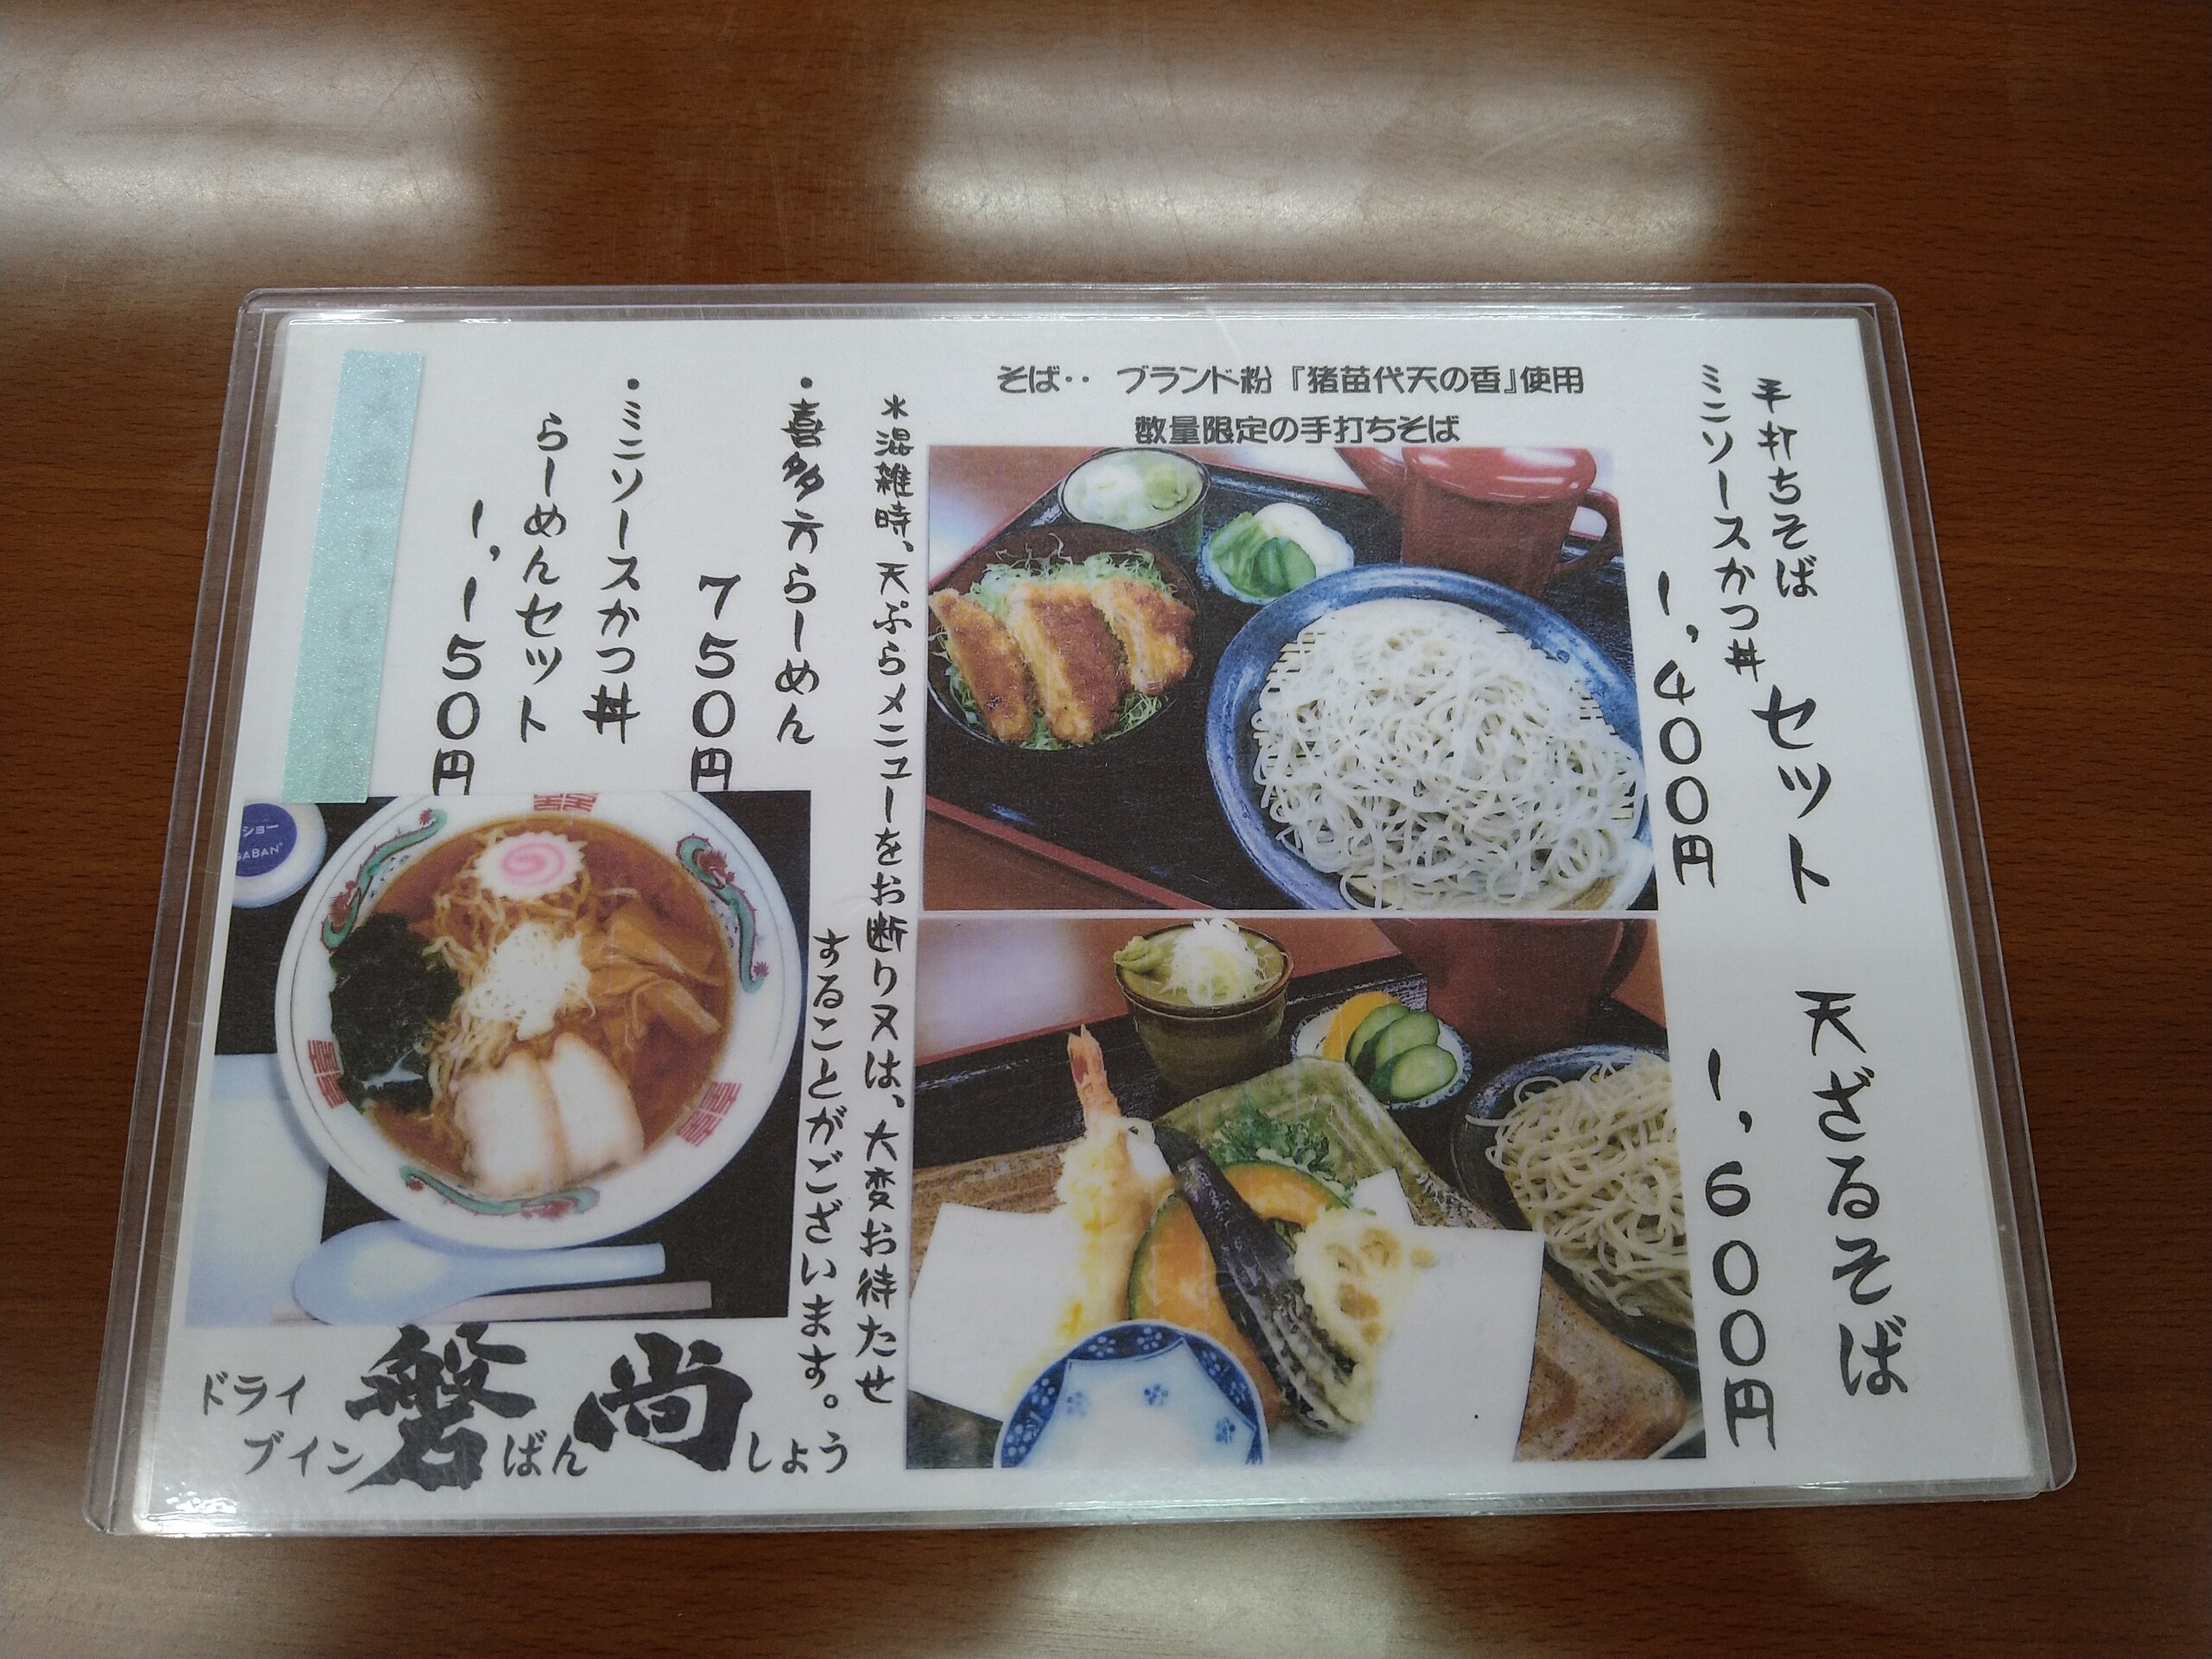 手打ちそば
ミニソースかつ丼
セット
1,400円
天ざるそば
1,600円
そば‥ ブランド粉『猪苗代天の香』使用
数量限定の手打ちそば
*混雑時、天ぷらメニューをお断り又は、大変お待たせ
することがございます。
・喜多方らーめん
750円
・ミニソースかつ丼
らーめんセット
1,150円
ショー
GABAN
ドライ
ブイン
磐
ばん
尚
しょう